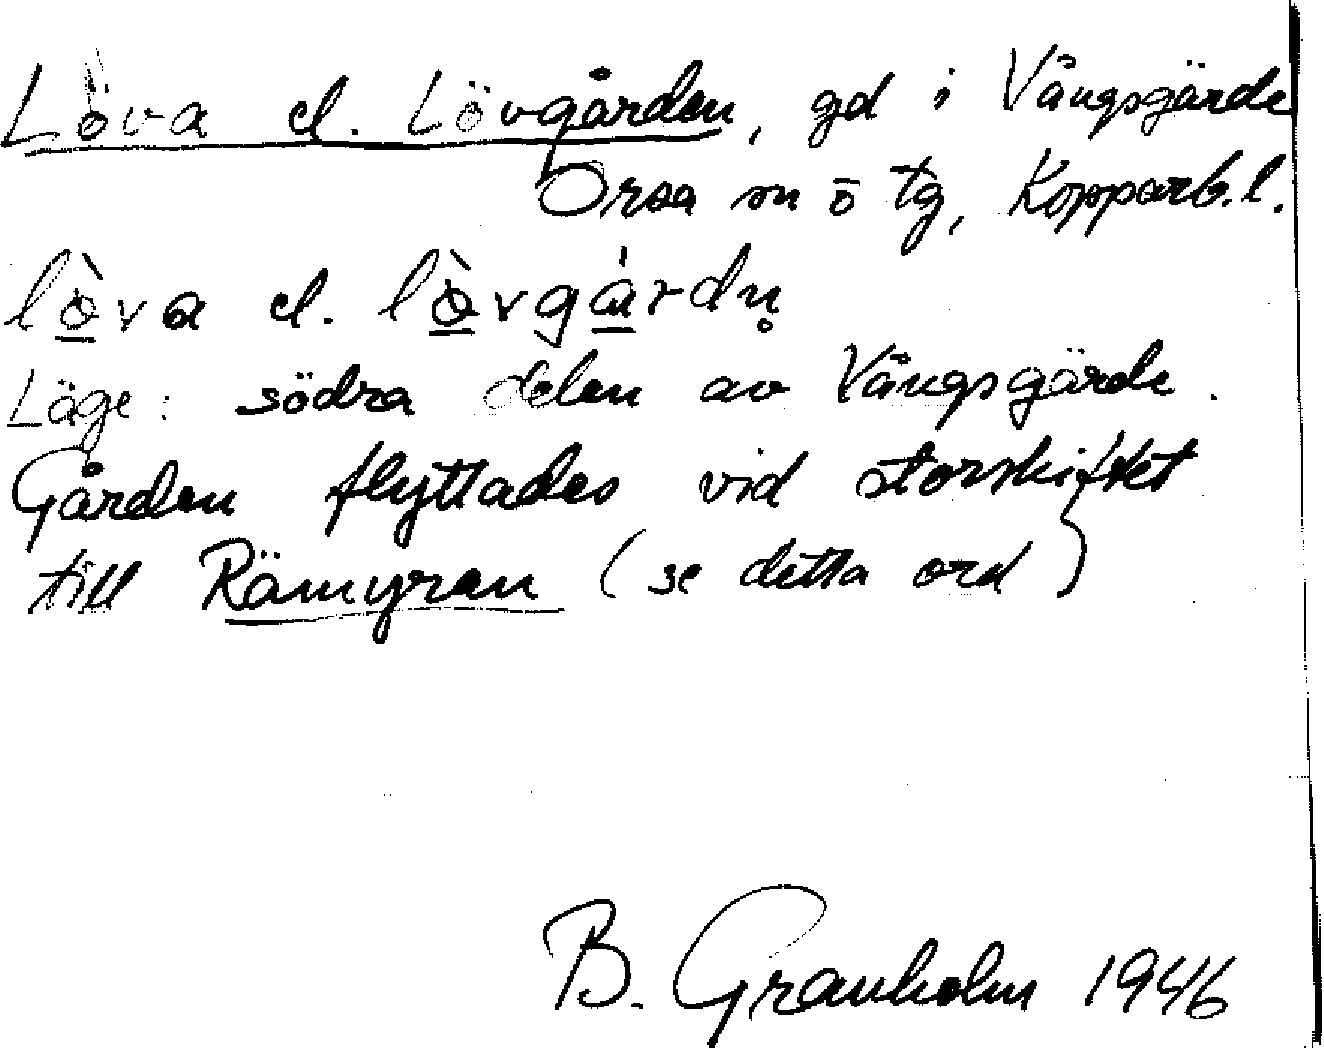 Löva el. Lövgården, gd i Vångsgärde
Orsa sn o tg, Kopparb.l.
lòva el. lòvgárdn̥
Läge: södra delen av Vångsgärde.
Gården flyttades vid storskiftet
till Rämyran (se detta ord)
B. Granholm 1946